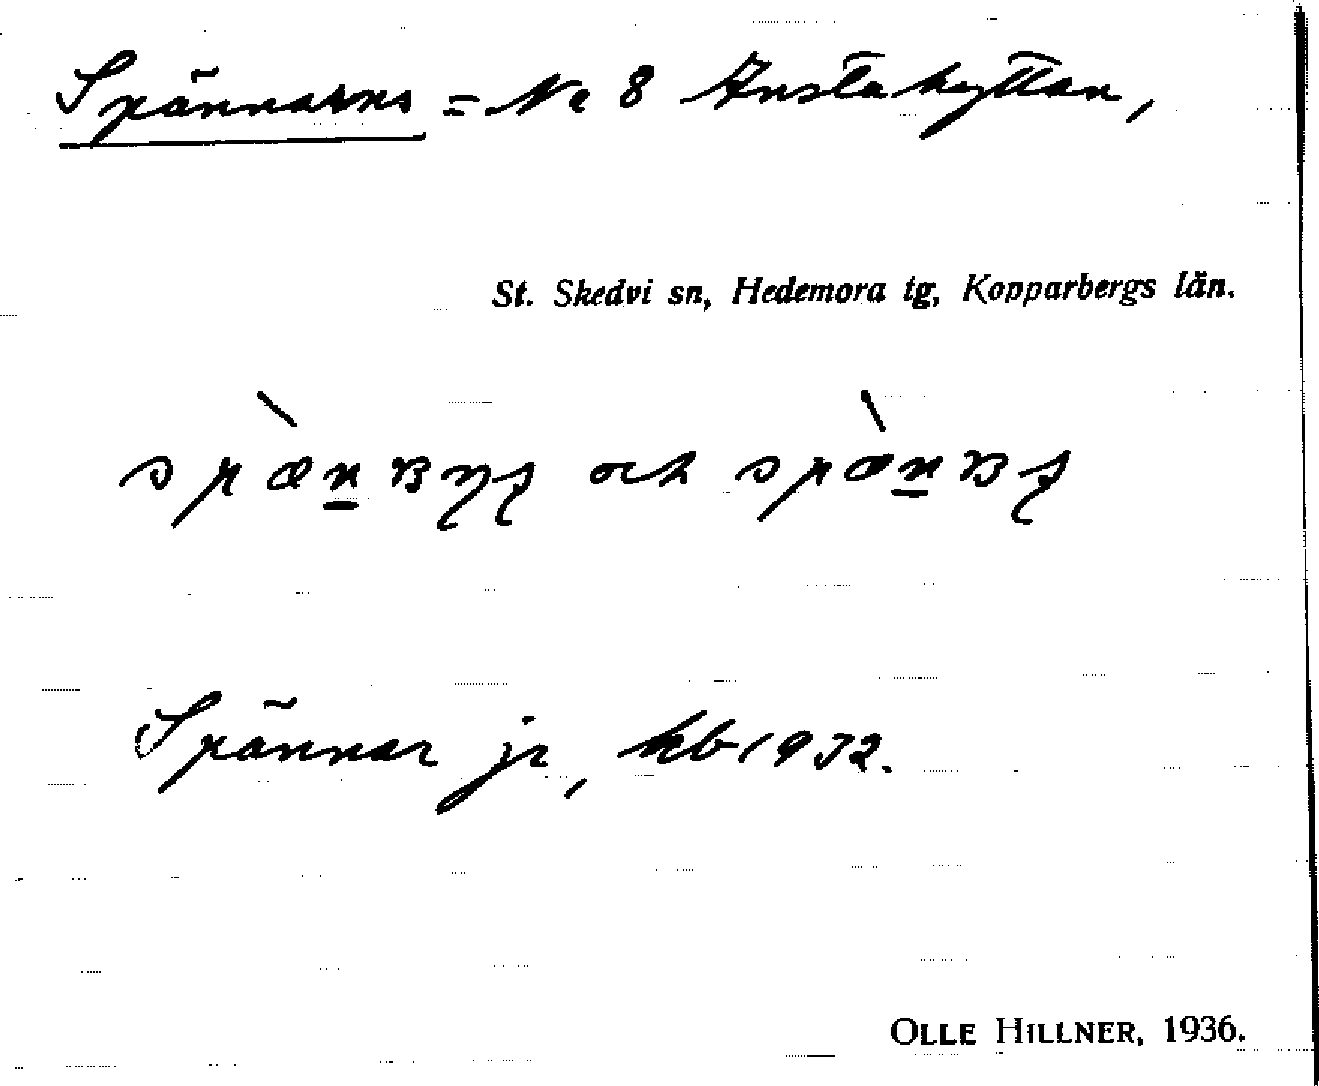 Spännarns = No 8 Anstahyttan,
St. Skedvi sn, Hedemora tg, Kopparbergs län.
och
Spännar jr, kb 1932.
OLLE HILLNER, 1936.